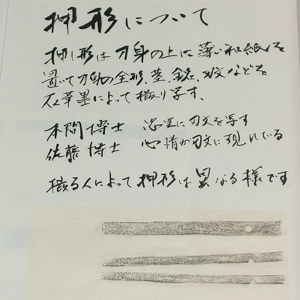 押形について
押し形は刀身の上に薄い和紙を
置いて刀身の全形、茎、銘、刃文などを
石華墨によって摺り写す。
本間博士 忠実に刃文を写す
佐藤博士 心情が刃文に現れている
摺る人によって押形は異なる様です